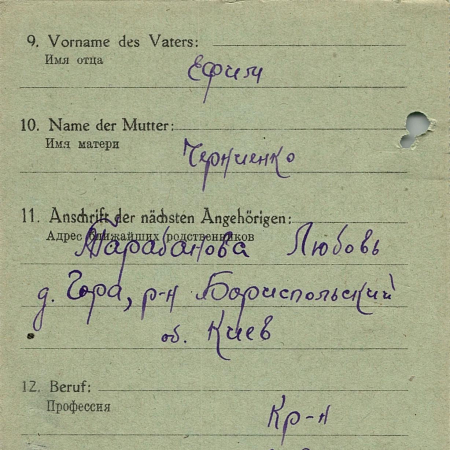 9. Vorname des Vaters:
Имя отца
Ефим
10. Name der Mutter:
Имя матери
Черниенко
11. Anschrift der nächsten Angehörigen:
Адрес ближайших родственников
Тарабанова Любовь
д. Гора, р-н Бориспольский
об. Киев
12. Beruf:
Профессия
Кр-н